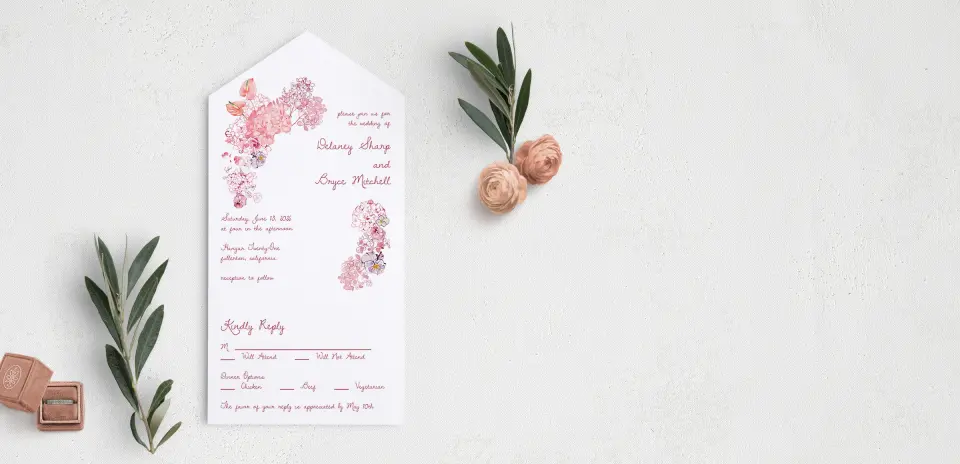 please join us for
the wedding of
Delaney Sharp
and
Bryce Mitchell
Saturday, June 13, 2026
at four in the afternoon
Hangar Twenty-One
fullerton, california
reception to follow
Kindly Reply
M
Will Attend Will Not Attend
Dinner Options:
Chicken Beef Vegetarian
The favor of your reply is appreciated by May 10th